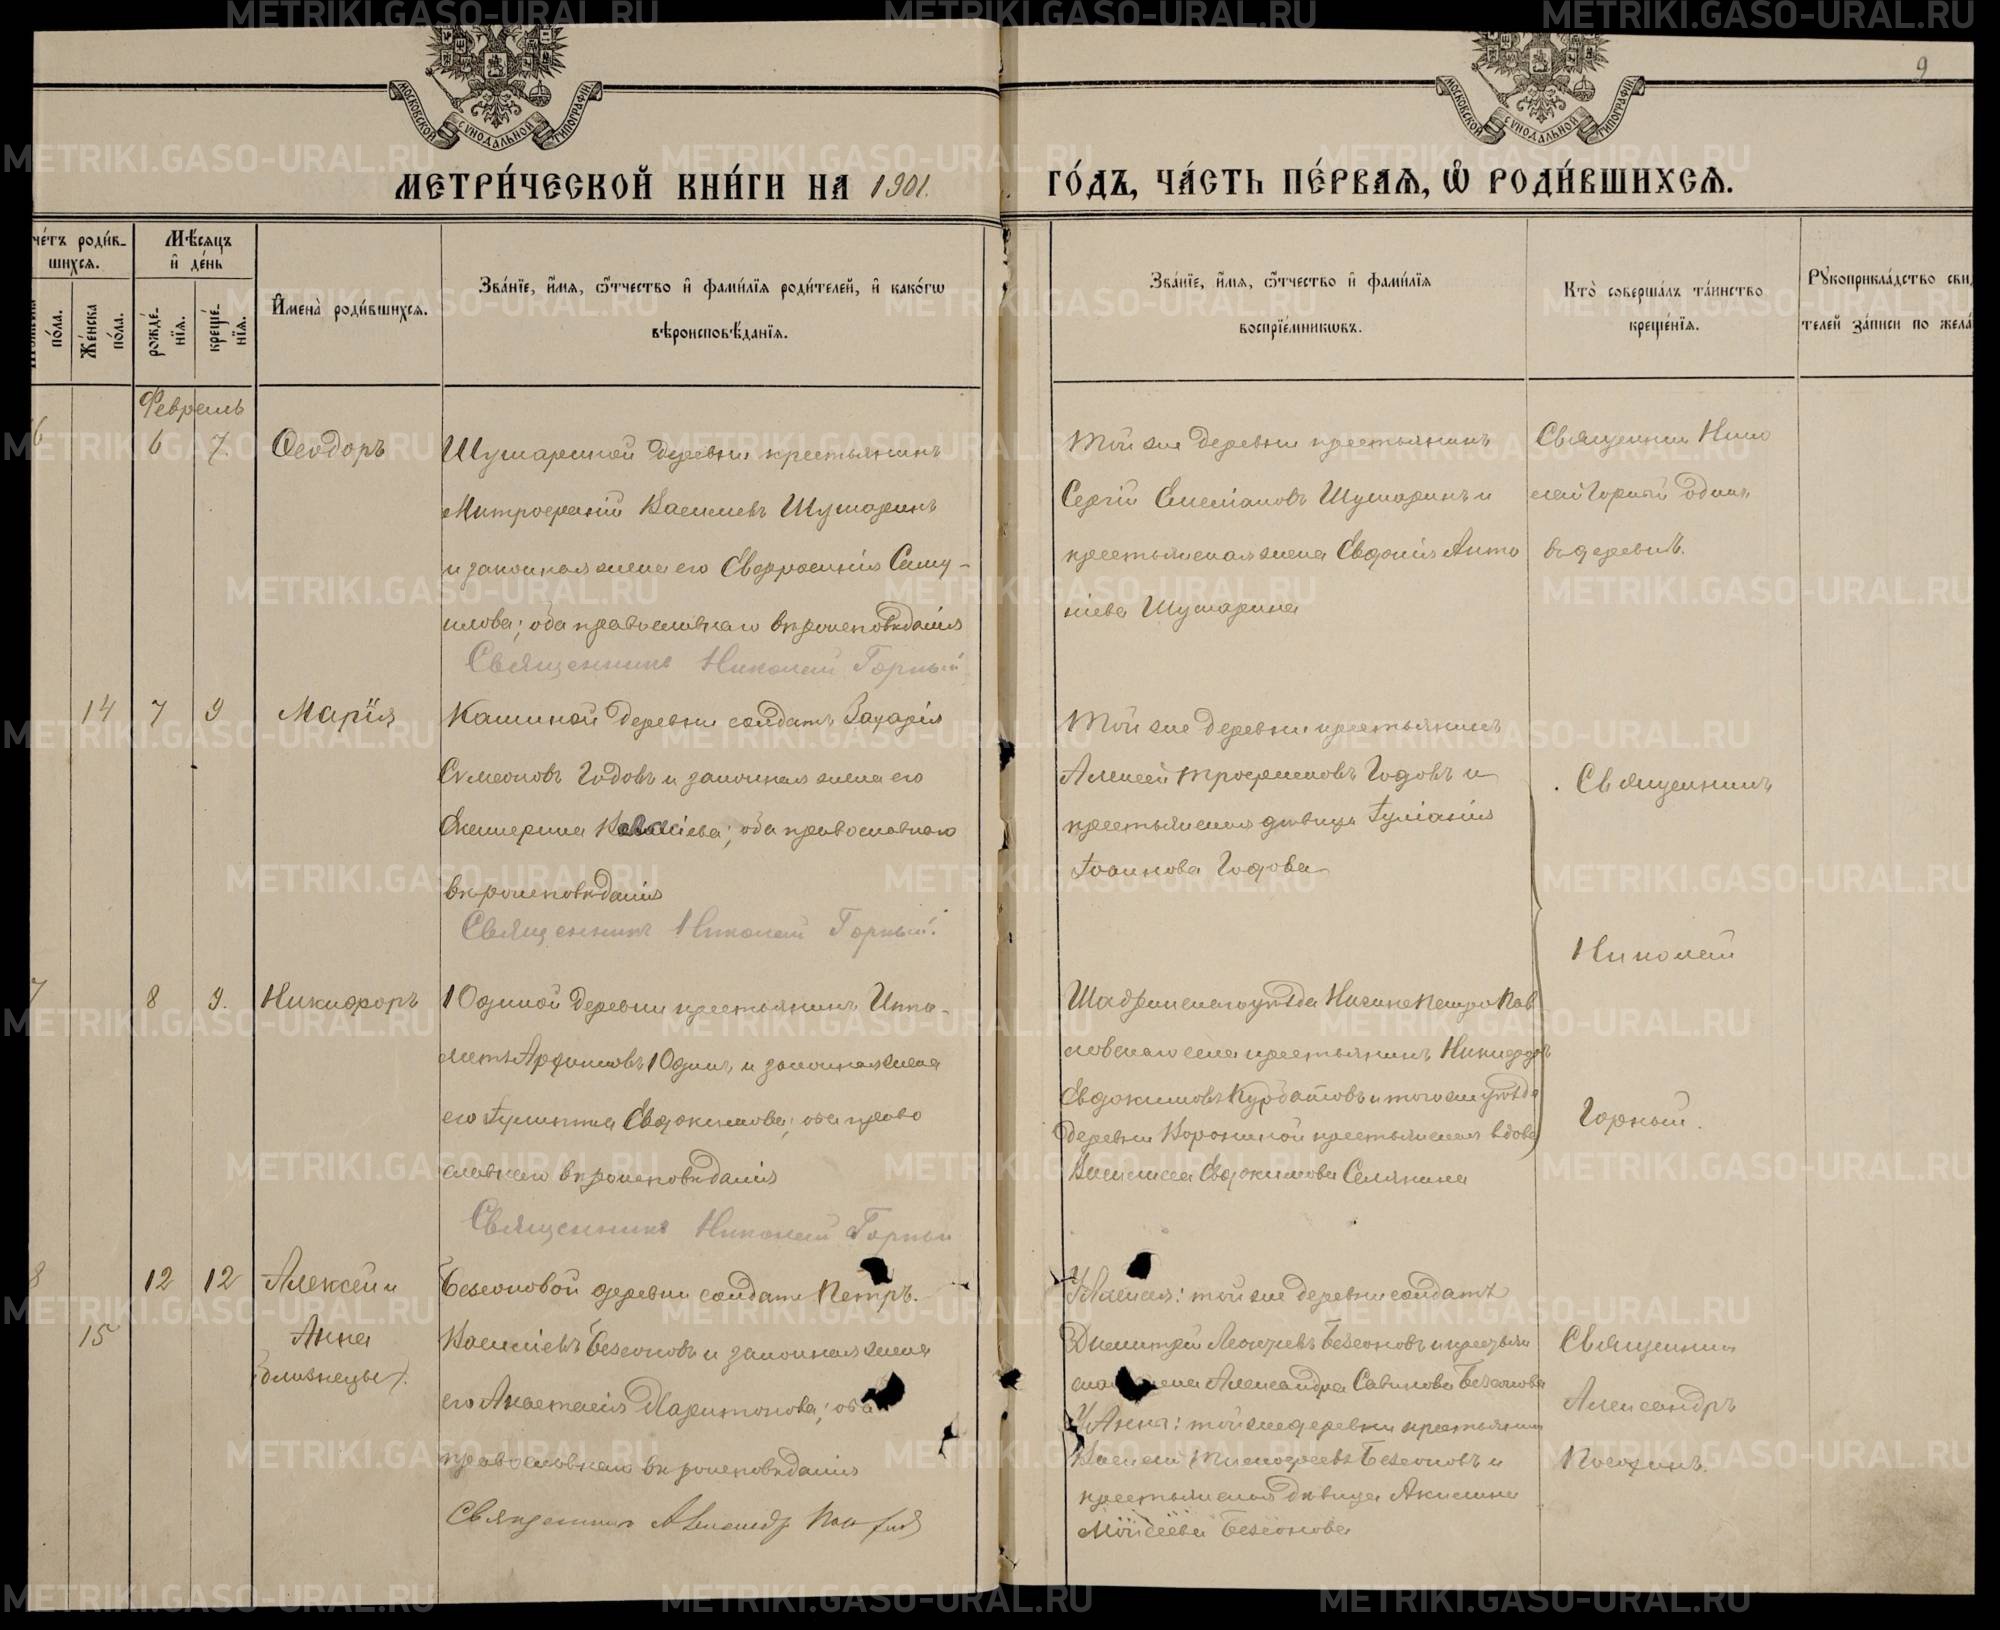 9
МОСКОВСКОЙ СѴНОДАЛЬНОЙ ТИПОГРАФІИ
МОСКОВСКОЙ СѴНОДАЛЬНОЙ ТИПОГРАФІИ
МЕТРИ́ЧЕСКОЙ КНИ́ГИ НА 1901.
ГО́ДЪ, ЧА́СТЬ ПЕ́РВАѦ, Ѡ҆ РОДИ́ВШИХСѦ.
че́тъ роди́в-
шихсѧ.
по́ла.
Же́нска
по́ла.
Мѣ́сѧцъ
и҆ де́нь
рожде́-
нїѧ.
креще́-
нїѧ.
И҆мена̀ роди́вшихсѧ.
Зва́нїе, и҆́мѧ, ѻ҆́тчество и҆ фами́лїѧ роди́телей, и҆ како́гѡ
вѣроисповѣ́данїѧ.
Зва́нїе, и҆́мѧ, ѻ҆́тчество и҆ фами́лїѧ
воспрїе́мникѡвъ.
Кто̀ соверша́лъ та́инство
креще́нїѧ.
Рꙋкоприкла́дство сви
телей за́писи по жела́
Февраль
6 6 7. Ѳеодоръ
Шушариной деревни крестьянинъ
Митрофаній Васильевъ Шушаринъ
и законная жена его Евфросинія Саму-
илова; оба православнаго вѣроисповѣданія
Священникъ Николай Горный
Той же деревни крестьянинъ
Сергій Емеліановъ Шушаринъ и
крестьянская жена Евдокія Анто
ніева Шушарина
Священникъ Нико
лай Горный
въ деревнѣ.
14 7 9 Марія
Кашиной деревни солдатъ Захарія
Сѵмеоновъ Годовъ и законная жена его
Екатерина оба православнаго
вѣроисповѣданія
Священникъ Николай Горный.
Той же деревни крестьянинъ
Алексей Трофимовъ Годовъ и
крестьянская дѣвица Іуліанія
Іоаннова Годова
Священникъ
Николай
Горный.
7 8 9. Никифоръ
Юдиной деревни крестьянинъ Ипа-
Юдинъ и законная жена
его Іулитта Евдокимова; оба право
славнаго вѣроисповѣданія
Священникъ Николай Горный
Шадринскаго уѣзда Нижнепетропав
ловскаго села крестьянинъ Никифоръ
Евдокимовъ Курбатовъ и того же уѣзда
деревни Ворониной крестьянская вдова
Василиса Евдокимова Селянина
8 12 12 Алексей и
15 Анна
(близнецы).
Безсоновой деревни солдатъ Петръ
Васильевъ Безсоновъ и законная жена
его Анастасія Харитонова; оба
православнаго вѣроисповѣданія
Священникъ Александр
У Алексея: той же деревни солдатъ
Димитрій Безсоновъ и крестьян
жена Александра Савинова Безсонова
У Анны: той же деревни крестьянин
Василій Тимофеевъ Безсоновъ и
крестьянская дѣвица Акилина
Моисеева Безсонова
Священникъ
Александръ